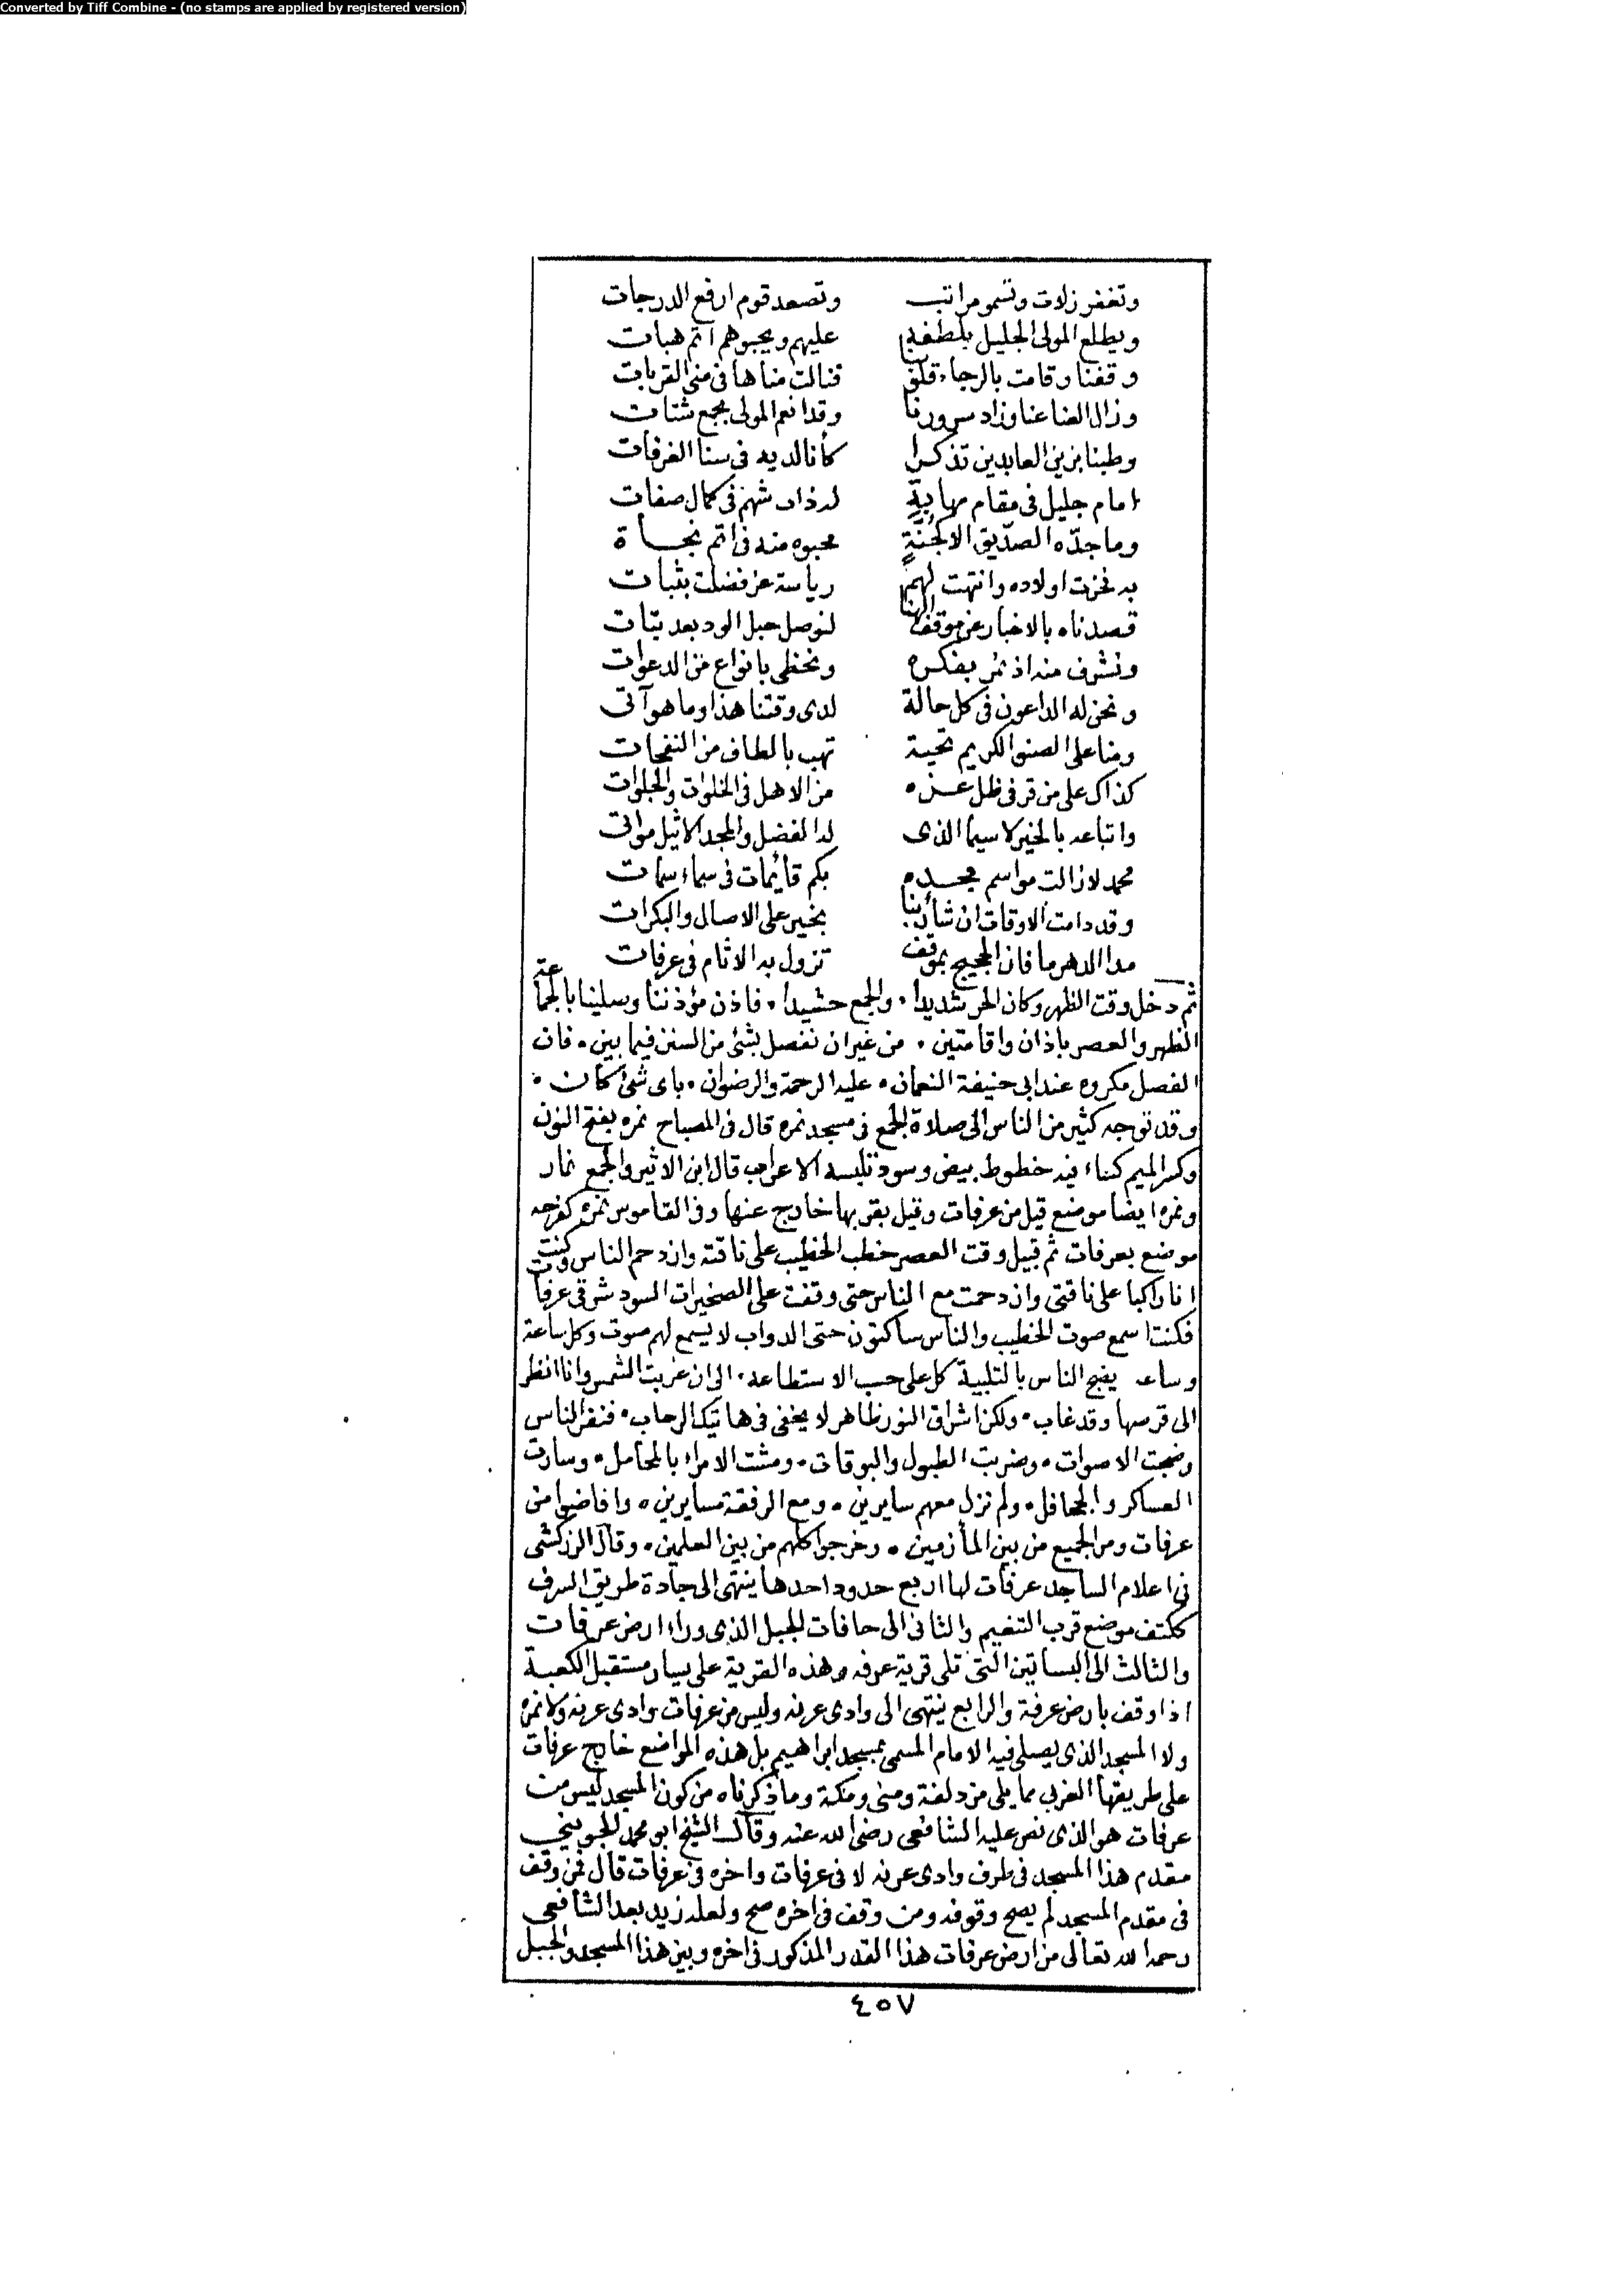 Converted by Tiff Combine - (no stamps are applied by registered version)
وتغفر زلات وتسمو مراتب وتصعد قوم ارفع الدرجات
ويطلع المولى الجليل بلطفه عليهم ويحبوهم اتم هبات
وقفنا وقامت بالرجاء قلوبنا فنالت مناها فى منى القربات
وزال العنا عنا وزاد سرورنا وقد انعم المولى بجمع شتات
وطبنا بزين العابدين تذكرا كأنا لديه فى سنا الغرفات
امام جليل فى مقام مهابة له ذات شهم فى كمال صفات
وما جده الصديق الا كجنة محبوه منه فى اتم نجاة
به فخرت اولاده وانتهت لهم رياسة عز فضلت بثبات
قصدناه بالاخبار عن موقف الهنا لنوصل حبل الود بعد بتات
ونشرف منه اذ نمر بفكره ونحظى بانواع من الدعوات
ونحن له الداعون فى كل حالة لدى وقتنا هذا وما هو آتى
ومنا على الصنو الكريم تحية تهب بالطاف من النفحات
كذاك على من قر فى ظل عزه من الاهل فى الخلوات والجلوات
واتباعه بالخير لا سيما الذى له الفضل والمجد الاثيل مواتى
محمد لا زالت مواسم مجده بكم قائمات فى سماء سمات
وقد دامت الاوقات ان شاء ربنا بخير على الاصال والبكرات
مدا الدهر ما فاز الحجيج بموقف تزول به الاثام فى عرفات
ثم دخل وقت الظهر وكان الحر شديدا . والجمع حشيدا . فاذن مؤذننا وصلينا بالجماعة
الظهر والعصر باذان واقامتين . من غير ان نفصل بشئ من السنن فيما بين . فان
الفصل مكروه عند ابى حنيفة النعمان . عليه الرحمة والرضوان . باى شئ كان .
وقد توجه كثير من الناس الى صلاة الجمع فى مسجد نمره قال فى المصباح نمره بفتح النون
وكسر الميم كساء فيه خطوط بيض وسود تلبسه الاعراب قال ابن الاثير والجمع نمار
ونمره ايضا موضع قيل من عرفات وقيل بقربها خارج عنها وفى القاموس نمره كفرحه
موضع بعرفات ثم قبيل وقت العصر خطب الخطيب على ناقته وازدحم الناس وكنت
انا راكبا على ناقتى وازدحمت مع الناس حتى وقفت على الصخيرات السود شرقى عرفات
فكنت اسمع صوت الخطيب والناس ساكتون حتى الدواب لا يسمع لهم صوت وكل ساعة
وساعه يضج الناس بالتلبية كل على حسب الاستطاعه . الى ان غربت الشمس وانا انظر
الى قرصها وقد غاب . ولكن اشراق النور ظاهر لا يخفى فى هاتيك الرحاب . فنفر الناس
وضجت الاصوات . وضربت الطبول والبوقات . ومشت الامراء بالمحامل . وسارت
العساكر والجحافل . ولم نزل معهم سايرين . ومع الرفقة مسايرين . وافاضوا من
عرفات ومر الجميع من بين المأزمين . وخرجوا كلهم من بين العلمين . وقال الزركشى
فى اعلام الساجد عرفات لها اربع حدود احدها ينتهى الى جادة طريق السرف
ككتف موضع قرب التنعيم والثانى الى حافات الجبل الذى وراء ارض عرفات
والثالث الى البساتين التى تلى قرية عرفه وهذه القرية على يسار مستقبل الكعبة
اذا وقف بارض عرفة والرابع ينتهى الى وادى عرنه وليس من عرفات وادى عرنه ولا نمره
ولا المسجد الذى يصلى فيه الامام المسمى بمسجد ابراهيم بل هذه المواضع خارج عرفات
على طريقها الغربى مما يلى مزدلفة ومنى ومكة وما ذكرناه من كون المسجد ليس من
عرفات هو الذى نص عليه الشافعى رضى الله عنه وقال الشيخ ابو محمد الجوينى
مقدم هذا المسجد فى طرف وادى عرنه لا فى عرفات واخره فى عرفات قال فمن وقف
فى مقدم المسجد لم يصح وقوفه ومن وقف فى اخره صح ولعله زيد بعد الشافعى
رحمه الله تعالى من ارض عرفات هذا القدر المذكور فى اخره وبين هذا المسجد والجبل
٤٥٧